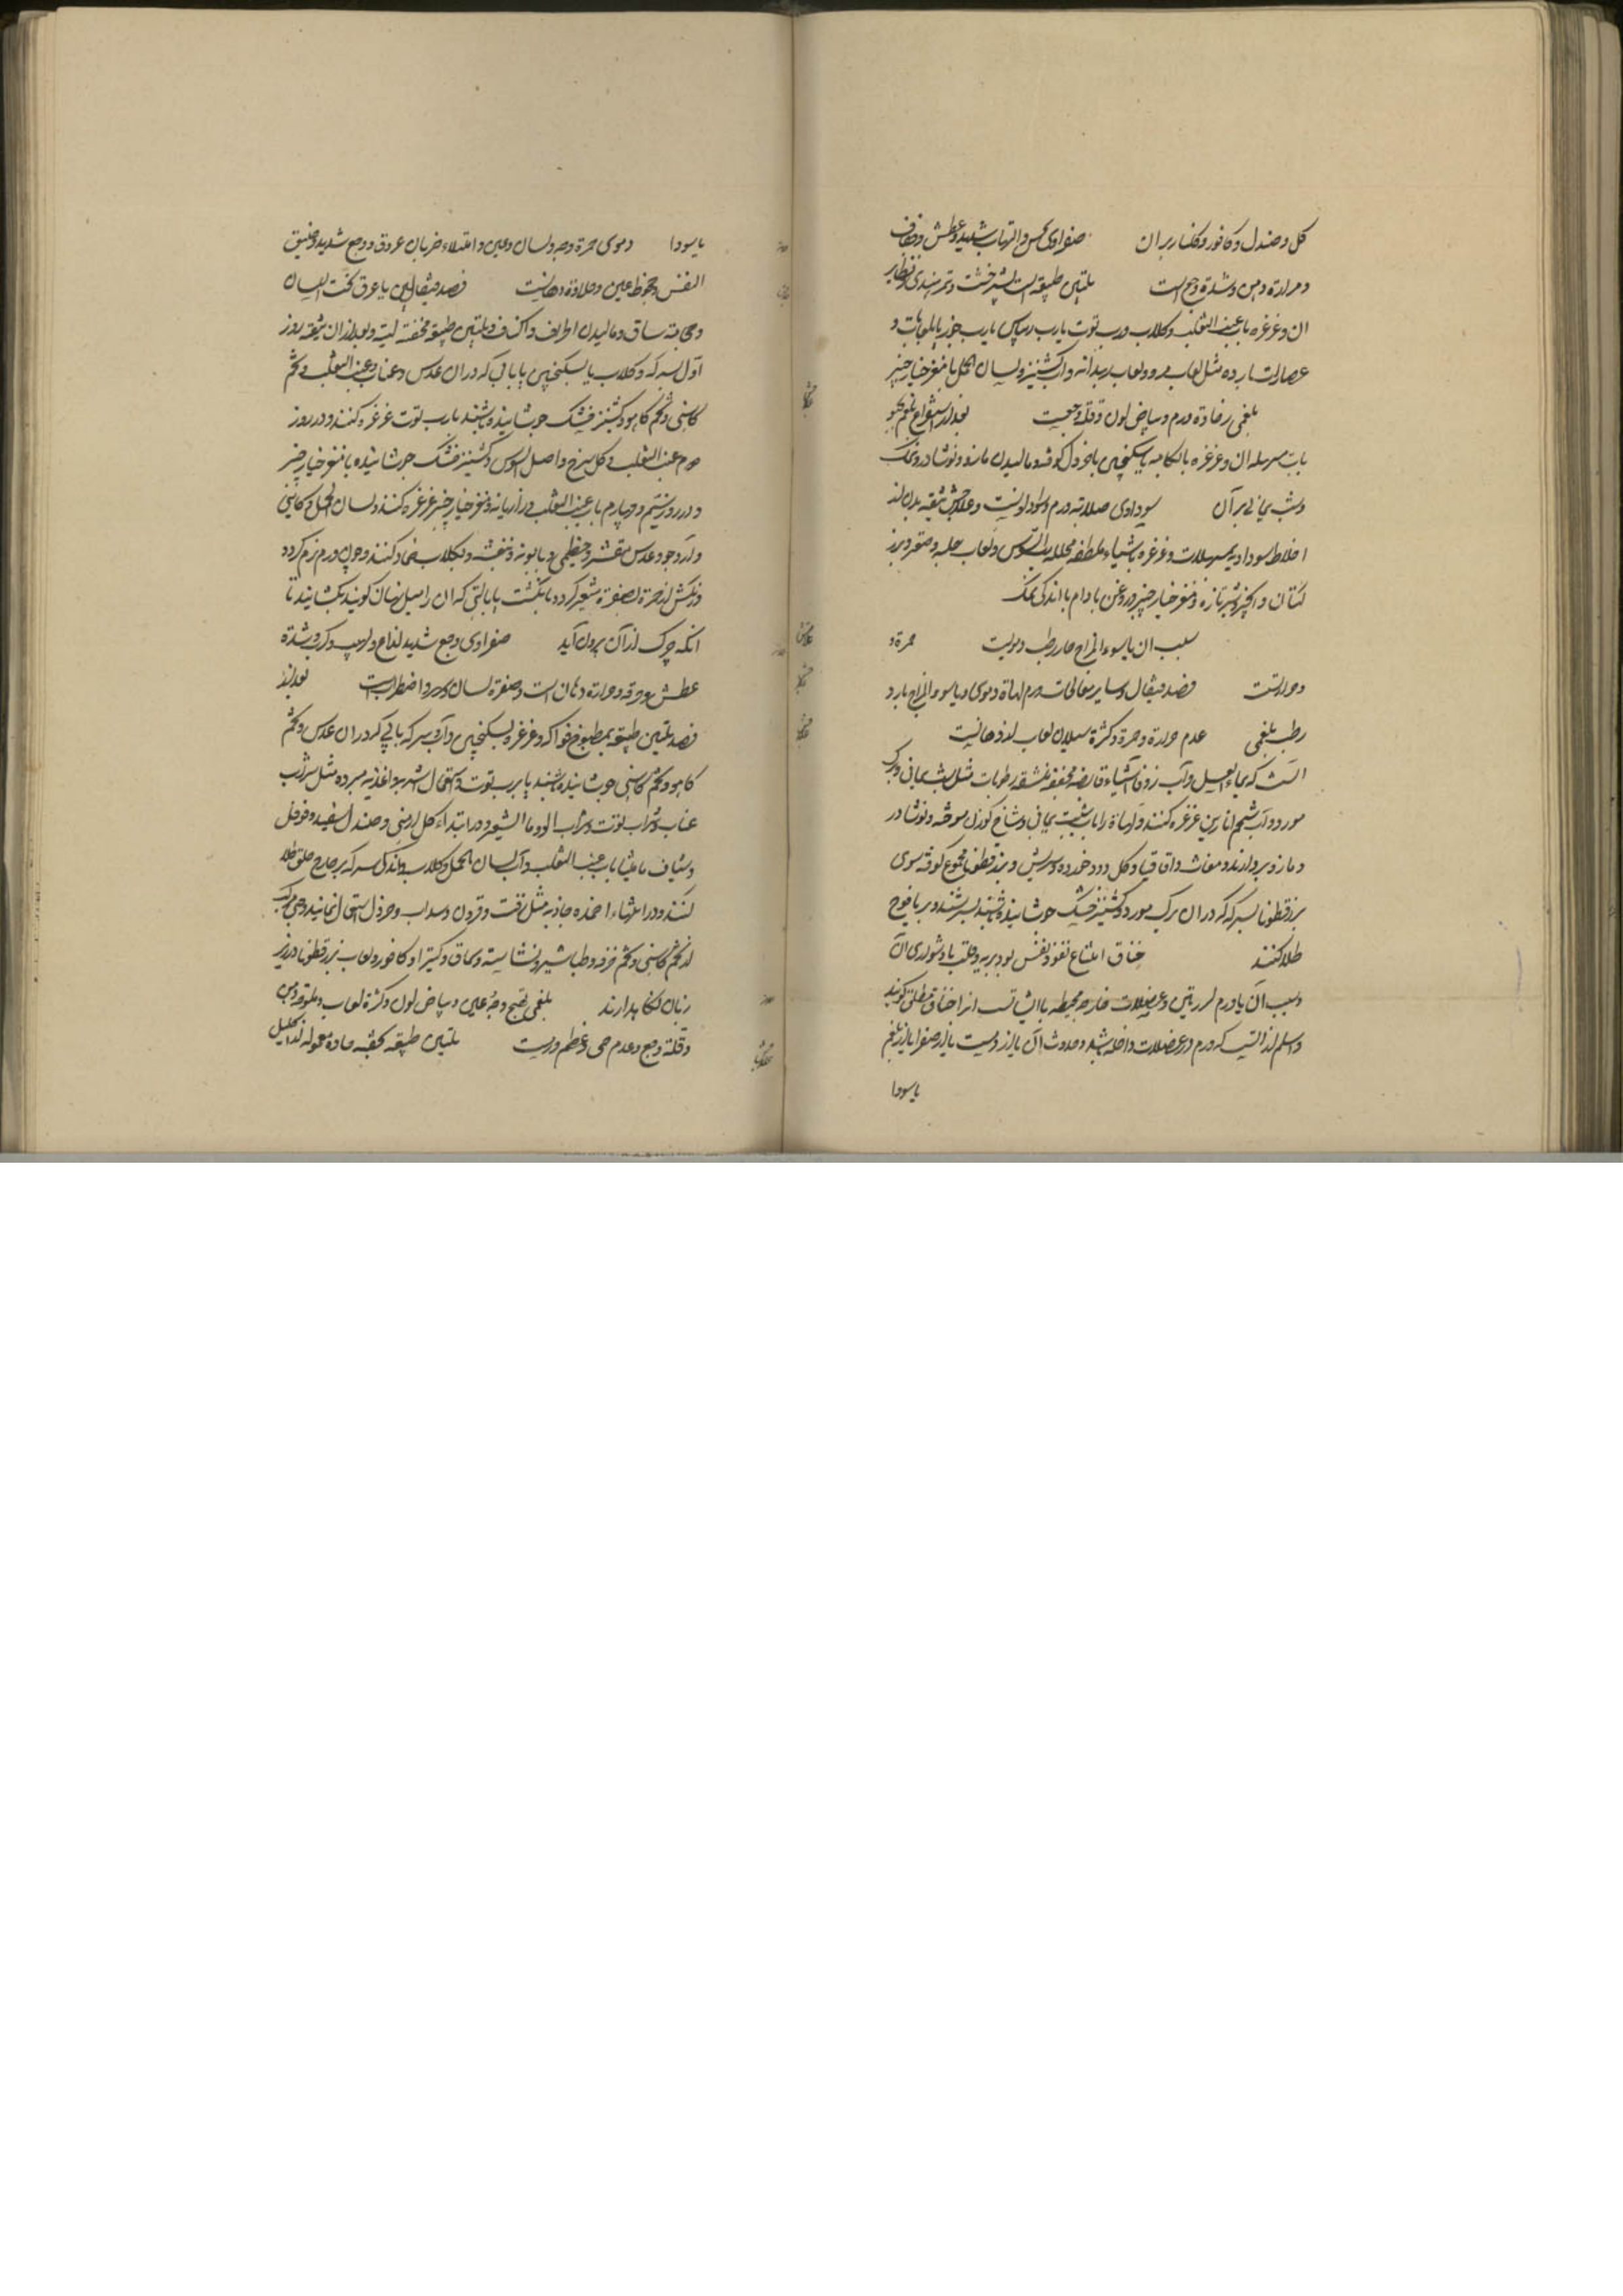 کل و صندل و کافور و کلنار بران صفراوی حس و التهاب شدید و عطش و جفاف
و مرارة دهن و شدة وجع است تلیین طبیعت است بشیرخشت و تمرهندی و نظایر
ان و غرغره باب عنب الثعلب و کلاب و رب توت یا رب ریباس یا رب جوز یا لعابات و
عصارات بارده مثل لعاب و لعاب بهدانه و اب کشنیز و لسان الحمل با مغز خیارچنبر
بلغمی رخاوة ورم و بیاض لون و قلة وجعست بعد از استفراغ بلغم
بات مسهله ان و غرغره بابکامه یا سکنجبین با خردل کوفته و مالیدن مازو و نوشادر و نمک
و شب یمانی بر آن سوداوی صلابة ورم و سواد لونست و علاجش تنقیه بدن از
اخلاط سوداویه بمسهلات و غرغره باشیاء ملطفه محلله برب السوس و لعاب حلبه و صعتر و بزر
کتان و انجیر و شیر تازه و مغز خیارچنبر و روغن بادام با اندکی نمک
سبب ان یا سوء المزاج حار رطب دمویست حمرة و
و حرارتست فصد قیفال و سایر معالجات ورم لهاة دموی و یا سوء المزاج بارد
رطب بلغمی عدم حرارة و حمرة و کثرة سیلان لعاب از دهانست
انست که بماء العسل و آب زوفا و اشیاء قابضه مجففه منشفه رطوبات مثل شب یمانی و برک
مورد و آب شحم انارین غرغره کنند و لهاة را باب شبت یمانی و شاخ کوزن سوخته و نوشادر
و مازو بردارند و مغاث و اقاقیا و کل دود خورده و سریش و بزر قطونا مجموع کوفته سوی
بزر قطونا بسرکه که در ان برک مورد و کشنیز خشک جوشانیده باشند بسرشند و بر یافوخ
طلا کنند خناق امتناع نفوذ نفس بود بریه و قلب یا دشواری ان
و سبب ان یا ورم لوزتین و عضلات خارجه محیطه باایشانست انرا خناق مطلق کویند
و اسلم از انست که ورم در عضلات داخله باشد و حدوث آن یا از دمست یا از صفرا یا از بلغم
یا سودا
یا سودا دموی حمرة وجه و لسان و عین و امتلاء ضربان عروق و وجع شدید و ضیق
النفس و جحوظ عین و حلاوة دهانست فصد قیفالین یا عرق تحت اللسان
و حجامة ساق و مالیدن اطراف و اکتاف و تلیین طبیعة بحقنه لینه و بعد از ان تنقیه روز
اول بسرکه و کلاب یا سکنجبین یا بابی که در ان عدس و عناب و عنب الثعلب و تخم
کاسنی و تخم کاهو و کشنیز خشک جوشانیده باشند یا رب توت غرغره کنند و در روز
دوم عنب الثعلب و کل سرخ و اصل السوس و کشنیز خشک جوشانیده با مغز خیارچنبر
و در روز سیم و چهارم باب عنب الثعلب و رازیانه و مغز خیارچنبر غرغره کنند و لسان الحمل و کاسنی
و آرد جو و عدس مقشر و خطمی و بابونه و بنفشه و بکلاب ضماد کنند و چون ورم نرم کردد
و رنکش از حمرة بصفرة متغیر کردد بانکشت یا بالتی که ان را میل نهان کویند بکشایند تا
انکه چرک از آن بیرون آید صفراوی وجع شدید لذاع و لهیب و کرب و شدة
عطش و حرقة و حرارة دهان است و صفرة لسان و وجه و اضطراب بعد از
فصد تلیین طبیعة بمطبوخ فواکه و غرغره بسکنجبین و آب و سرکه یا بابی که در ان عدس و تخم
کاهو و تخم کاسنی جوشانیده باشند یا برب توت و استعمال اشربه و اغذیه مبرده مثل شراب
عناب و شراب توت و شراب الو و ماء الشعیر و در ابتداء کل ارمنی و صندل سفید و فوفل
و شیاف مامیثا باب عنب الثعلب و آب لسان الحمل و کلاب و اندک سرکه بر خارج حلق طلا
کنند و در انتهاء اضمده جاذبه مثل زفت و قردمن و سداب و خردل استعمال نمایند و حبی مرکب
از تخم کاسنی و تخم خرفه و طباشیر و نشاسته و سماق و کتیرا و کافور و لعاب بزر قطونا در زیر
زبان نکاه دارند بلغمی تهبج وجه و عین و بیاض لون و کثرة لعاب و ملوحة دهن
و قلة وجع و عدم حمی و عظم ورمست تلیین طبیعة بحقنه حاده معموله از اکلیل